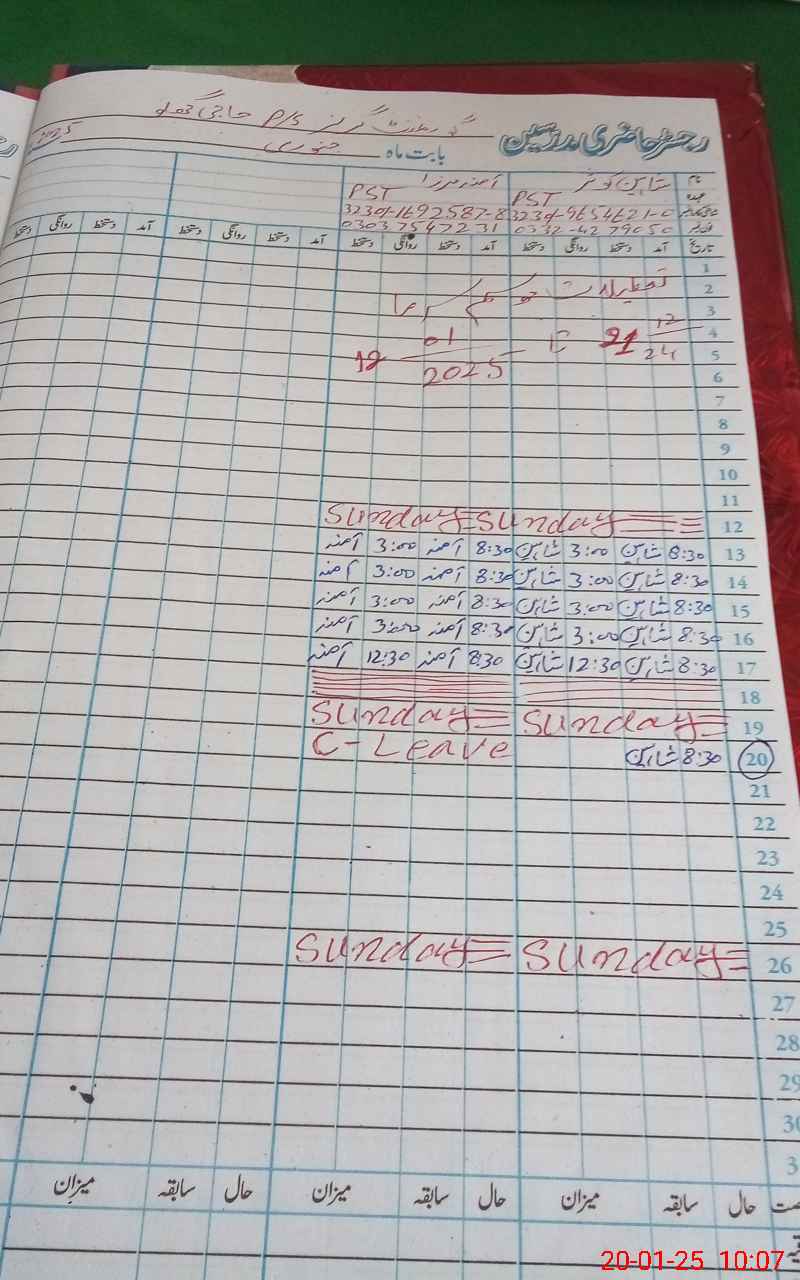 رجسٹر حاضری مدرسین
گورنمنٹ گرلز P/S حاجی
بابت ماہ جنوری 2025
نام شاہین کوثر آمنہ میرزا
عہدہ PST PST
32304-9654621-0 32304-1692587-8
0332-4279050 03037547231
تاریخ آمد دستخط روانگی دستخط آمد دستخط روانگی دستخط آمد دستخط روانگی دستخط آمد دستخط روانگی دستخط
1
2 تعطیلات موسم سرما
3
4 21 12
5 24 12 01
6 2025
7
8
9
10
11
12 Sunday Sunday
13 8:30 شاہین 3:00 شاہین 8:30 آمنہ 3:00 آمنہ
14 8:30 شاہین 3:00 شاہین 8:30 آمنہ 3:00 آمنہ
15 8:30 شاہین 3:00 شاہین 8:30 آمنہ 3:00 آمنہ
16 8:30 شاہین 3:00 شاہین 8:30 آمنہ 3:00 آمنہ
17 8:30 شاہین 12:30 شاہین 8:30 آمنہ 12:30 آمنہ
18
19 Sunday Sunday
20 8:30 شاہین C-Leave
21
22
23
24
25
26 Sunday Sunday
27
28
29
30
3
حال سابقہ میزان حال سابقہ میزان حال سابقہ میزان
20-01-25 10:07